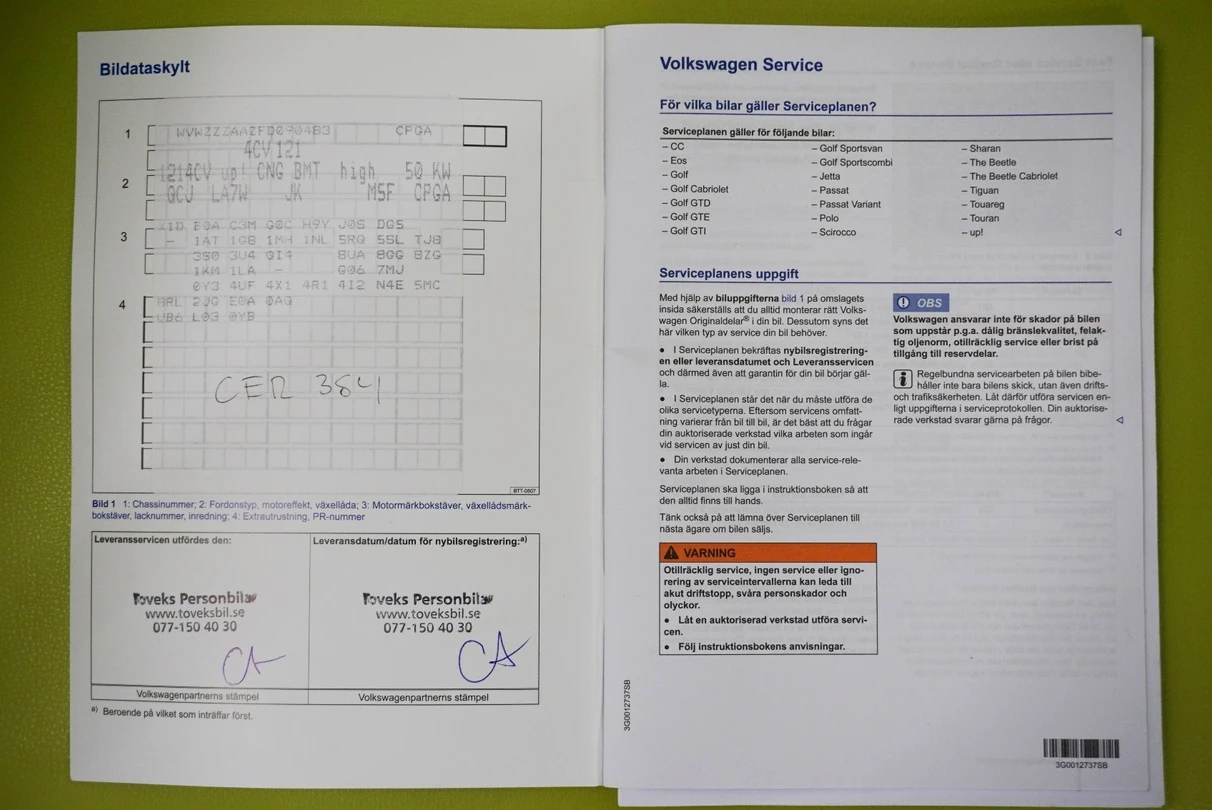 Bildataskylt
1 WVWZZZAAZFD0904B3 CPGA
4CV121
1214CV up! CNG BMT high 50 KW
2 QCJ LA7W JK M5F CPGA
X1D B0A C3M G0C H9Y J0S DG5
3 - 1AT 1GB 1MH 1NL 5RQ 5SL TJ8
3S0 3U4 QI4 8UA 8GG 8ZG
1KM 1LA - G06 7MJ
0Y3 4UF 4X1 4R1 4I2 N4E 5MC
4 8RL 2JG E0A 0AG
UB6 L03 0YB
CER 384
BTT-0607
Bild 1 1: Chassinummer; 2: Fordonstyp, motoreffekt, växellåda; 3: Motormärkbokstäver, växellådsmärk-
bokstäver, lacknummer, inredning; 4: Extrautrustning, PR-nummer
Leveransservicen utfördes den:
Toveks Personbilar
www.toveksbil.se
077-150 40 30
CA
Volkswagenpartnerns stämpel
Leveransdatum/datum för nybilsregistrering:a)
Toveks Personbilar
www.toveksbil.se
077-150 40 30
CA
Volkswagenpartnerns stämpel
a) Beroende på vilket som inträffar först.
Volkswagen Service
För vilka bilar gäller Serviceplanen?
Serviceplanen gäller för följande bilar:
– CC
– Eos
– Golf
– Golf Cabriolet
– Golf GTD
– Golf GTE
– Golf GTI
– Golf Sportsvan
– Golf Sportscombi
– Jetta
– Passat
– Passat Variant
– Polo
– Scirocco
– Sharan
– The Beetle
– The Beetle Cabriolet
– Tiguan
– Touareg
– Touran
– up!
Serviceplanens uppgift
Med hjälp av biluppgifterna bild 1 på omslagets
insida säkerställs att du alltid monterar rätt Volks-
wagen Originaldelar® i din bil. Dessutom syns det
här vilken typ av service din bil behöver.
● I Serviceplanen bekräftas nybilsregistrering-
en eller leveransdatumet och Leveransservicen
och därmed även att garantin för din bil börjar gäl-
la.
● I Serviceplanen står det när du måste utföra de
olika servicetyperna. Eftersom servicens omfatt-
ning varierar från bil till bil, är det bäst att du frågar
din auktoriserade verkstad vilka arbeten som ingår
vid servicen av just din bil.
● Din verkstad dokumenterar alla service-rele-
vanta arbeten i Serviceplanen.
Serviceplanen ska ligga i instruktionsboken så att
den alltid finns till hands.
Tänk också på att lämna över Serviceplanen till
nästa ägare om bilen säljs.
VARNING
Otillräcklig service, ingen service eller igno-
rering av serviceintervallerna kan leda till
akut driftstopp, svåra personskador och
olyckor.
● Låt en auktoriserad verkstad utföra servi-
cen.
● Följ instruktionsbokens anvisningar.
OBS
Volkswagen ansvarar inte för skador på bilen
som uppstår p.g.a. dålig bränslekvalitet, felak-
tig oljenorm, otillräcklig service eller brist på
tillgång till reservdelar.
Regelbundna servicearbeten på bilen bibe-
håller inte bara bilens skick, utan även drifts-
och trafiksäkerheten. Låt därför utföra servicen en-
ligt uppgifterna i serviceprotokollen. Din auktorise-
rade verkstad svarar gärna på frågor.
3G0012737SB
3G0012737SB